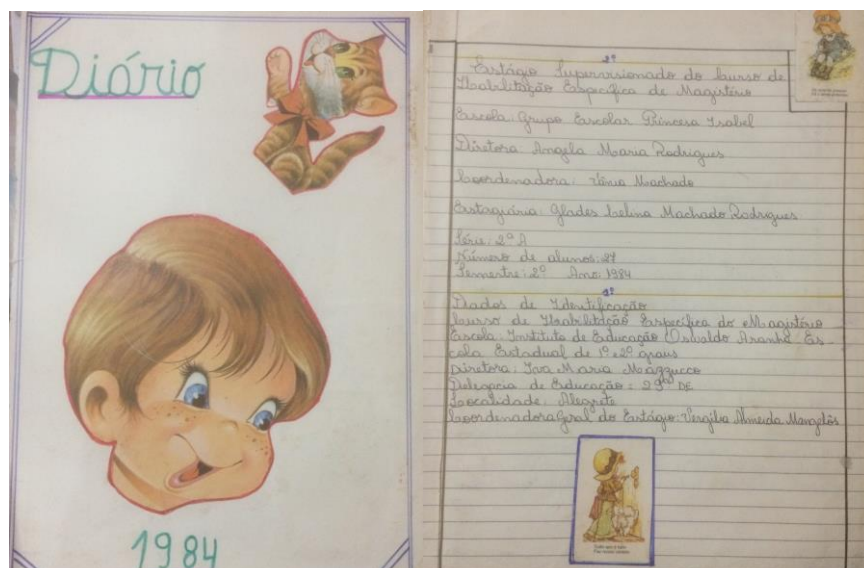 Diário
1984
2º
Estágio Supervisionado do Curso de
Habilitação Específica de Magistério
Escola: Grupo Escolar Princesa Isabel
Diretora Angela Maria Rodrigues
Coordenadora: Vânia Machado
Estagiária: Glades Celina Machado Rodrigues
Série: 2ª A
Número de alunos: 27
Semestre: 2º Ano: 1984
1º
Dados de Identificação
Curso de Habilitação Específica do Magistério
Escola: Instituto de Educação Oswaldo Aranha Es-
cola Estadual de 1º e 2º graus
Diretora: Iva Maria Mazzucco
Delegacia de Educação = 29ª DE
Localidade: Alegrete
Coordenadora Geral do Estágio: Vergília Almeida